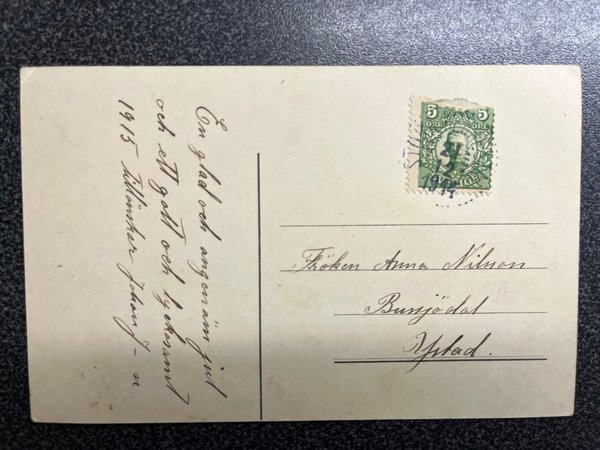 En glad och angenäm jul
och ett gott och lycksamt
1915 tillönskar Johan J-n
5 5
ÖRE ÖRE
SVERIGE
1914
Fröken Anna Nilsson
Bussjödal
Ystad.